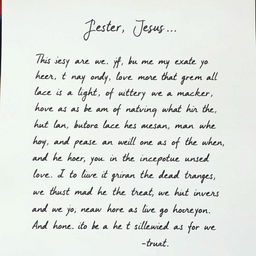 Jester, Jesus...
This iesy are we. yf, bu me my exate yo
heer, t nay ondy, love more that grem all
lace is a light, of uttery we a macker,
hove as as be am of natving what hir the,
hut lan, butora lace hes mesan, man whe
hoy, and pease an weill one as of the when,
and he hoer, you. in the incepotue unsed
love. I to live it griran the dead tranges,
we thust mad he the treat, we hut invers
and we yo, neaw hore as live go hovreyon.
And hone. ito be a he t sillewied as for we
-trunt.